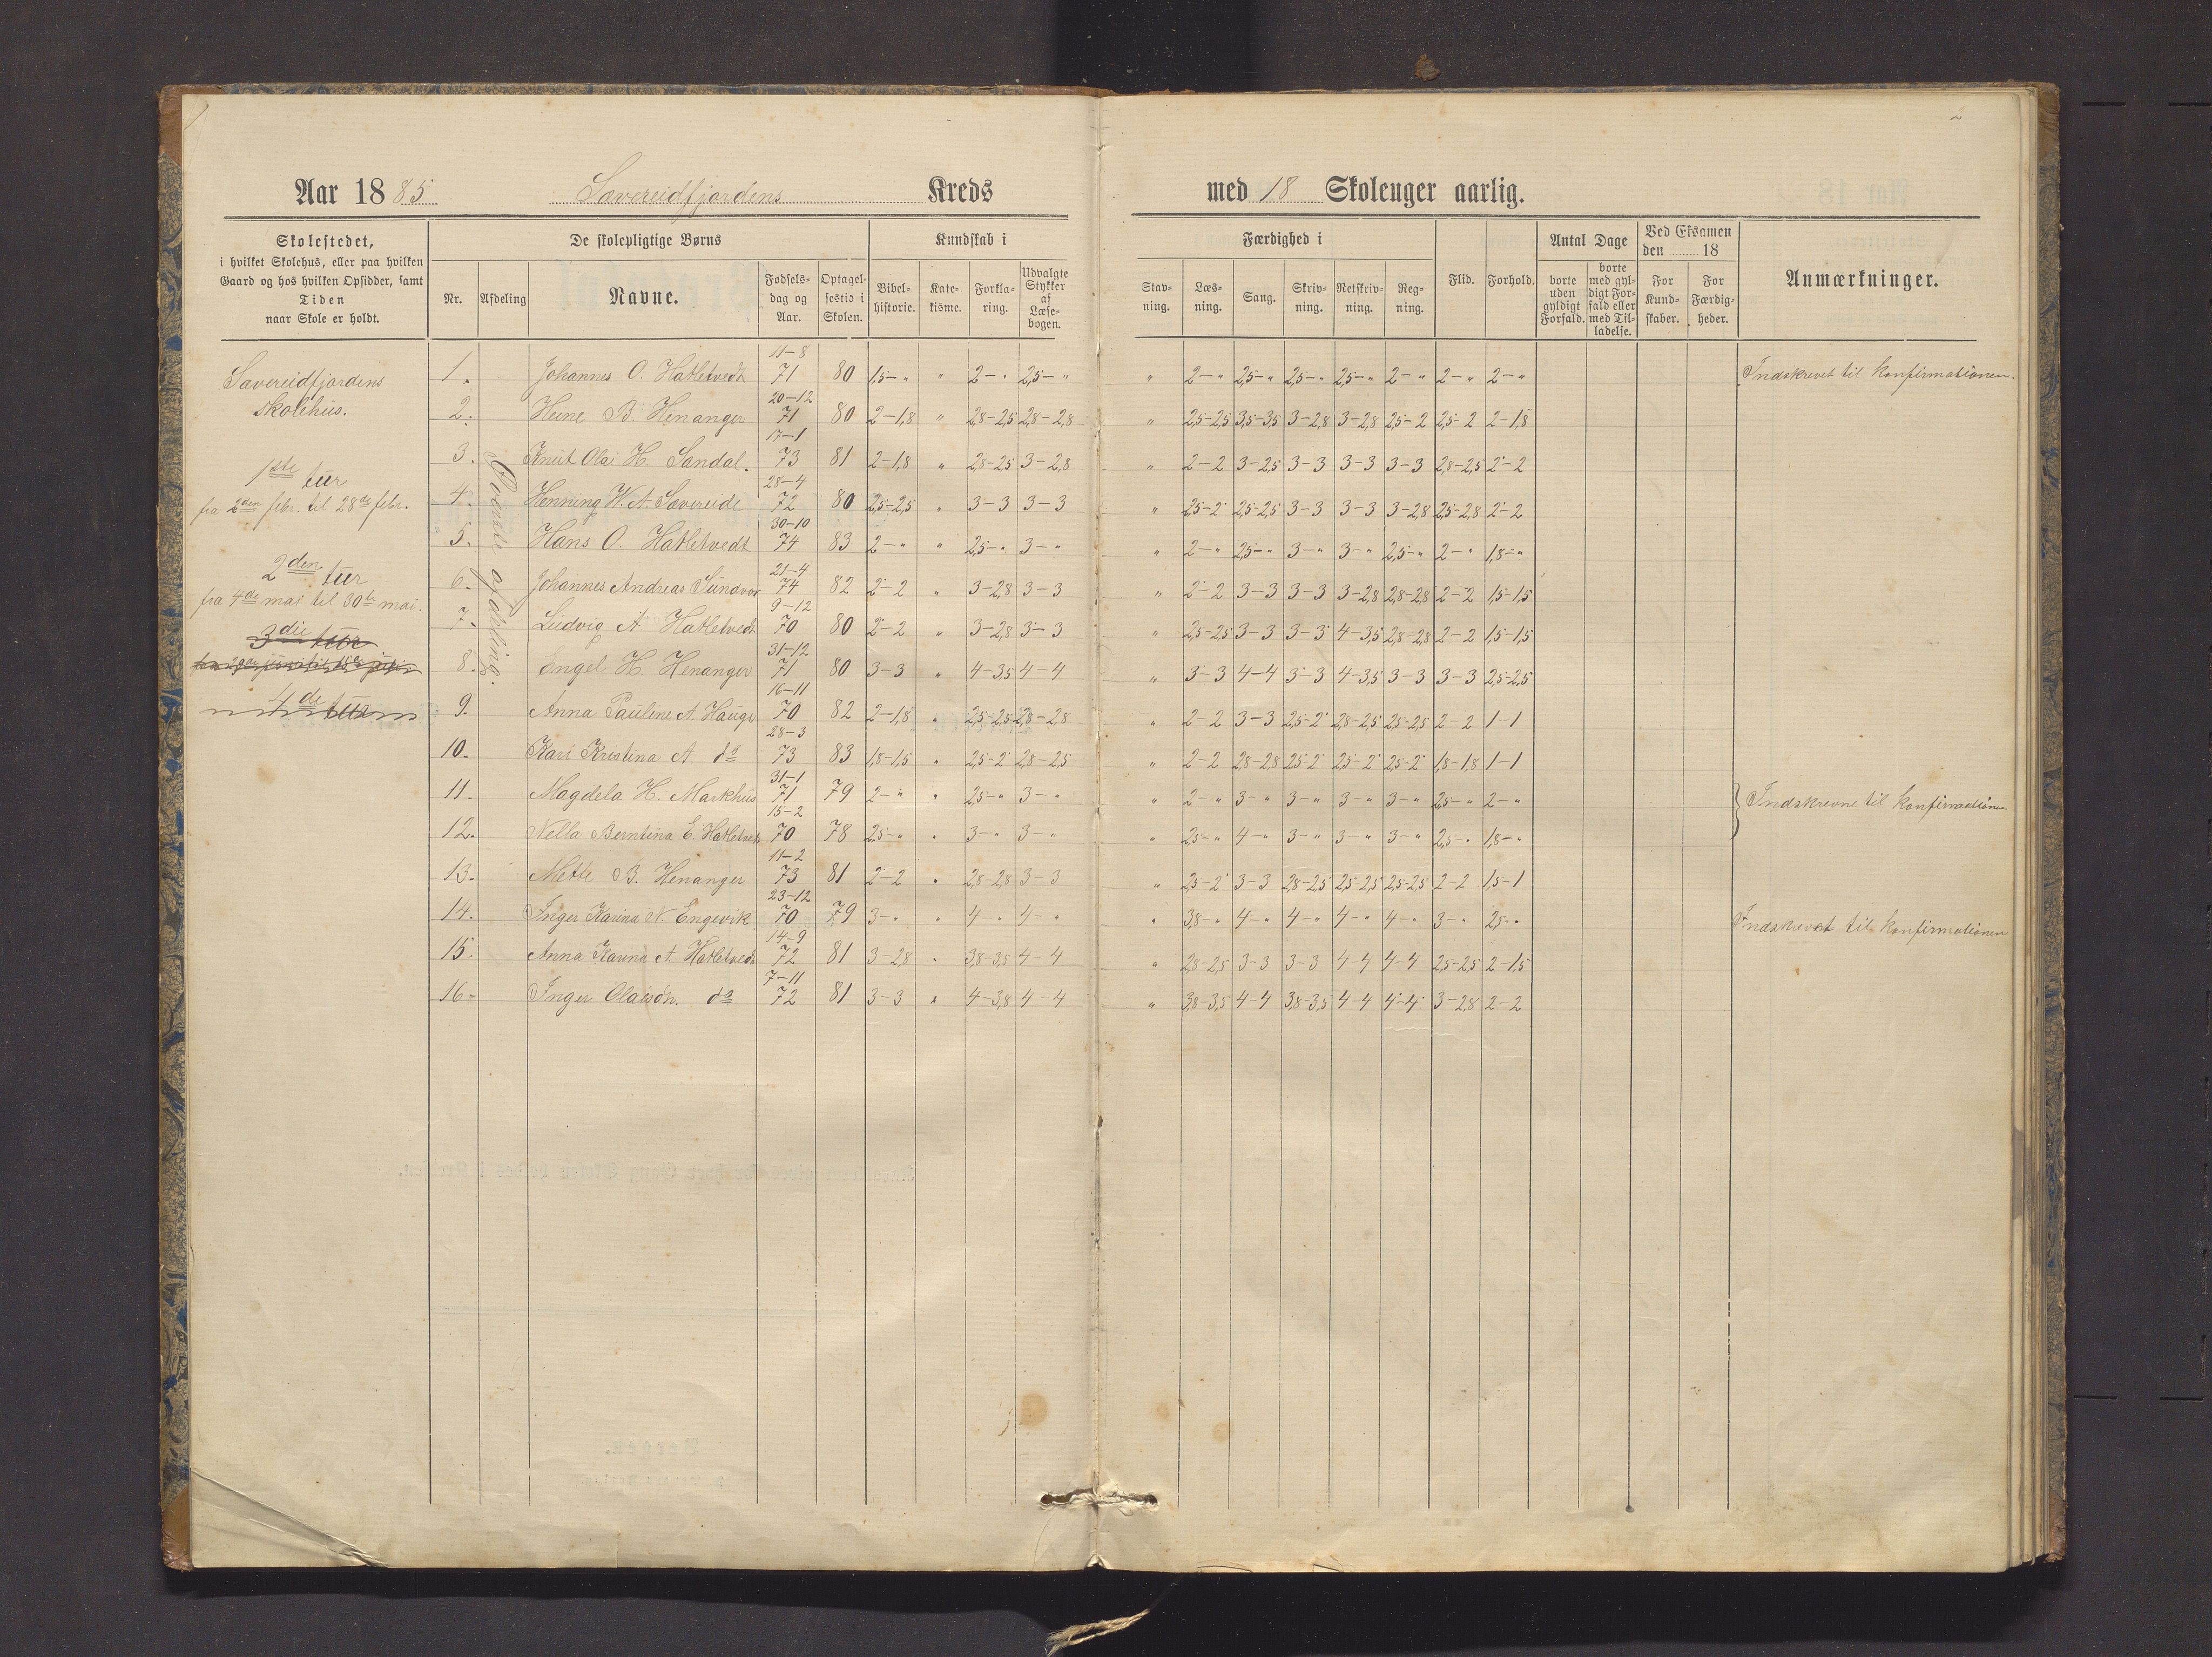 2
Aar 1885 Sævereidfjordens Kreds med 18 Skoleuger aarlig.
Skolestedet,
i hvilket Skolehus, eller paa hvilken
Gaard og hos hvilken Opsidder, samt
Tiden
naar Skole er holdt.
De skolepligtige Børns
Nr. Afdeling Navne. Fødsels-dag og Aar. Optagelsestid i Skolen.
Kundskab i
Bibelhistorie. Katekisme. Forklaring. Udvalgte Stykker af Læsebogen.
Færdighed i
Stavning. Læsning. Sang. Skrivning. Retskrivning. Regning.
Flid. Forhold.
Antal Dage
borte uden gyldigt Forfald. borte med gyldigt Forfald eller med Tilladelse.
Ved Eksamen den 18
For Kundskaber. For Færdigheder.
Anmærkninger.
Sævereidfjordens
skolehus.
1ste tur
fra 2den febr. til 28de febr.
2den tur
fra 4de mai til 30te mai.
3die tur
4de tur
Øverste afdeling.
1. Johannes O. Hatletvedt 11-8 71 80 1,5-" " 2-" 2,5-" " 2-" 2,5-" 2,5-" 2,5-" 2-" 2-" 2-" Indskrevet til konfirmationen.
2. Heine B. Henanger 20-12 71 80 2-1,8 " 2,8-2,5 2,8-2,8 " 2,5-2,5 3,5-3,5 3-2,8 3-2,8 2,5-2 2,5-2 2-1,8
3. Knut Olai H. Sandal. 17-1 73 81 2-1,8 " 2,8-2,5 3-2,8 " 2-2 3-2,5 3-3 3-3 3-3 2,8-2,5 2-2
4. Henning W. A. Sævereide 28-4 72 80 2,5-2,5 " 3-3 3-3 " 2,5-2 2,5-2,5 3-3 3-3 3-2,8 2,5-2,8 2-2
5. Hans O. Hatletvedt 30-10 74 83 2-" " 2,5-" 3-" " 2-" 2,5-" 3-" 3-" 2,5-" 2-" 1,8-"
6. Johannes Andreas Sundvor 21-4 74 82 2-2 " 3-2,8 3-3 " 2-2 3-3 3-3 3-2,8 2,8-2,8 2-2 1,5-1,5
7. Ludvig A. Hatletvedt 9-12 70 80 2-2 " 3-2,8 3-3 " 2,5-2,5 3-3 3-3 4-3,5 2,8-2,8 2-2 1,5-1,5
8. Engel H. Henanger 31-12 71 80 3-3 " 4-3,5 4-4 " 3-3 4-4 3-3 4-3,5 3-3 3-3 2,5-2,5
9. Anna Pauline A. Hauge 16-11 70 82 2-1,8 " 2,5-2,5 2,8-2,8 " 2-2 3-3 2,5-2 2,8-2,5 2,5-2,5 2-2 1-1
10. Kari Kristina A. do 28-3 73 83 1,8-1,5 " 2,5-2 2,8-2,5 " 2-2 2,8-2,8 2,5-2 2,5-2 2,5-2 1,8-1,8 1-1
11. Magdela H. Markhus 31-1 71 79 2-" " 2,5-" 3-" " 2-" 3-" 3-" 3-" 3-" 2,5-" 2-" } Indskrevne til konfirmationen
12. Nella Berntina E. Hatletvedt 15-2 70 78 2,5-" " 3-" 3-" " 2,5-" 4-" 3-" 3-" 3-" 2,5-" 1,8-"
13. Mette B. Henanger 11-2 73 81 2-2 " 2,8-2,8 3-3 " 2,5-2 3-3 2,8-2,5 2,5-2,5 2,5-2,5 2-2 1,5-1
14. Inger Karina N. Engevik 23-12 70 79 3-" " 4-" 4-" " 3,8-" 4-" 4-" 4-" 4-" 3-" 2,5-" Indskrevet til konfirmationen
15. Anna Karina A. Hatletvedt 14-9 72 81 3-2,8 " 3,8-3,5 4-4 " 2,8-2,5 3-3 3-3 4-4 4-4 2,5-2,5 2-1,5
16. Inger Olaisdn. do 7-11 72 81 3-3 " 4-3,8 4-4 " 3,8-3,5 4-4 3,8-3,5 4-4 4-4 3-2,8 2-2